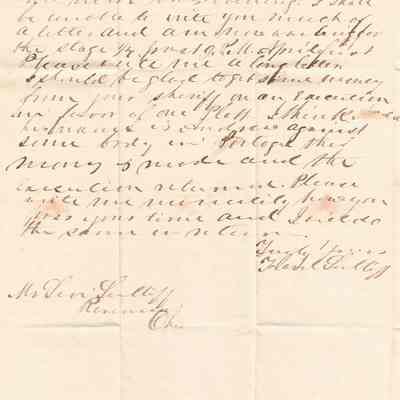 be unable to write you much of
a letter and am now waiting for
the stage
Please write me a long letter
I should be glad to get some money
from your sheriff on an Execution
in favor of one Platt I think
his name is Andrews against
some body in Portage this
money is made and the
execution returned. Please
write me minutely how you
pass your time and I will do
the same in return
Truly Yours
Flavel Sutliff
Mr Levi Sutliff
Ohio